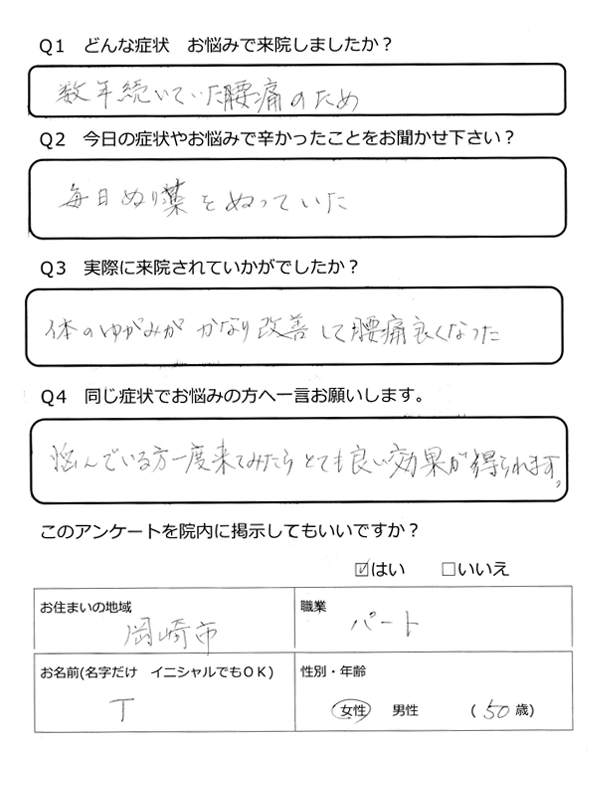 Q1 どんな症状 お悩みで来院しましたか？
数年続いていた腰痛のため
Q2 今日の症状やお悩みで辛かったことをお聞かせ下さい？
毎日ぬり薬をぬっていた
Q3 実際に来院されていかがでしたか？
体のゆがみが かなり改善して腰痛良くなった
Q4 同じ症状でお悩みの方へ一言お願いします。
悩んでいる方一度来てみたら とても良い効果が得られます。
このアンケートを院内に掲示してもいいですか？
☑はい □いいえ
お住まいの地域 職業
岡崎市 パート
お名前(名字だけ イニシャルでもOK) 性別・年齢
T 女性 男性 (50歳)